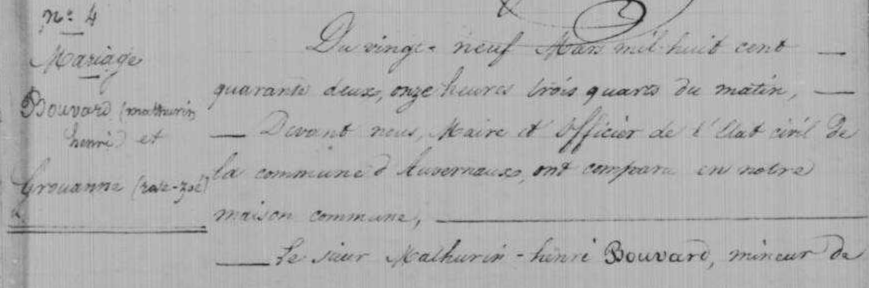 n.° 4
Mariage
Bouvard (mathurin
henri) et
Grouanne (rose-zoé)
Du vingt-neuf Mars mil-huit cent
quarante deux, onze heures trois quarts du matin,
Devant nous, Maire et Officier de l'Etat civil de
la commune d'Auvernaux, ont comparu en notre
maison commune,
Le sieur Mathurin-henri Bouvard, mineur de